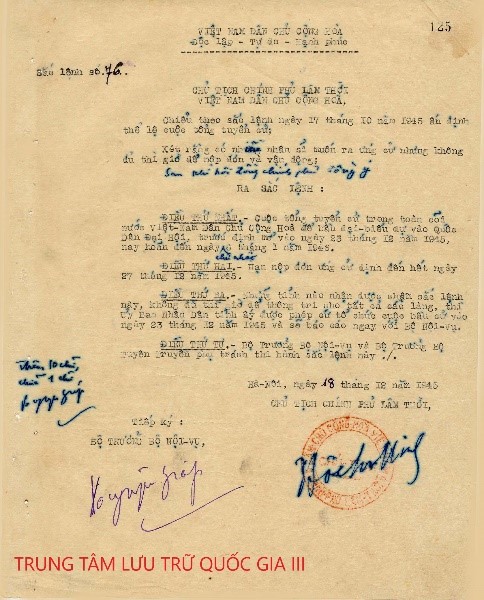 125
VIỆT NAM DÂN CHỦ CỘNG HÒA
Độc lập - Tự do - Hạnh phúc
Sắc lệnh số 76.
CHỦ TỊCH CHÍNH PHỦ LÂM THỜI
VIỆT NAM DÂN CHỦ CỘNG HÒA,
Chiểu theo sắc lệnh ngày 17 tháng 10 năm 1945 ấn định
thể lệ cuộc tổng tuyển cử;
Xét rằng có nhiều nhân sĩ muốn ra ứng cử nhưng không
đủ thì giờ để nộp đơn và vận động;
Sau khi hội đồng chính phủ đồng ý
RA SẮC LỆNH :
ĐIỀU THỨ NHẤT.- Cuộc tổng tuyển cử trong toàn cõi
nước Việt-Nam Dân Chủ Cộng Hoà để bầu đại-biểu dự vào Quốc
Dân Đại Hội, trước định mở vào ngày 23 tháng 12 năm 1945,
nay hoãn đến ngày 6 tháng 1 năm 1946.
chủ nhật
ĐIỀU THỨ HAI.- Hạn nộp đơn ứng cử định đến hết ngày
27 tháng 12 năm 1945.
ĐIỀU THỨ BA.- Những tỉnh nào nhận được chậm sắc lệnh
này, không đủ thì giờ để thông tri cho tất cả các làng, thì
Uỷ Ban Nhân Dân tỉnh ấy được phép cứ tổ chức cuộc bầu cử vào
ngày 23 tháng 12 năm 1945 và sẽ báo cáo ngay với Bộ Nội-Vụ.
ĐIỀU THỨ TƯ.- Bộ Trưởng Bộ Nội-Vụ và Bộ Trưởng Bộ
Tuyên Truyền phụ trách thi hành sắc lệnh này ./.
Thêm 10 chữ,
chữa 1 chữ
Hà-Nội, ngày 18 tháng 12 năm 1945
CHỦ TỊCH CHÍNH PHỦ LÂM THỜI,
Tiếp ký :
BỘ TRƯỞNG BỘ NỘI-VỤ,
Võ nguyên Giáp
Hồ chí Minh
TRUNG TÂM LƯU TRỮ QUỐC GIA III